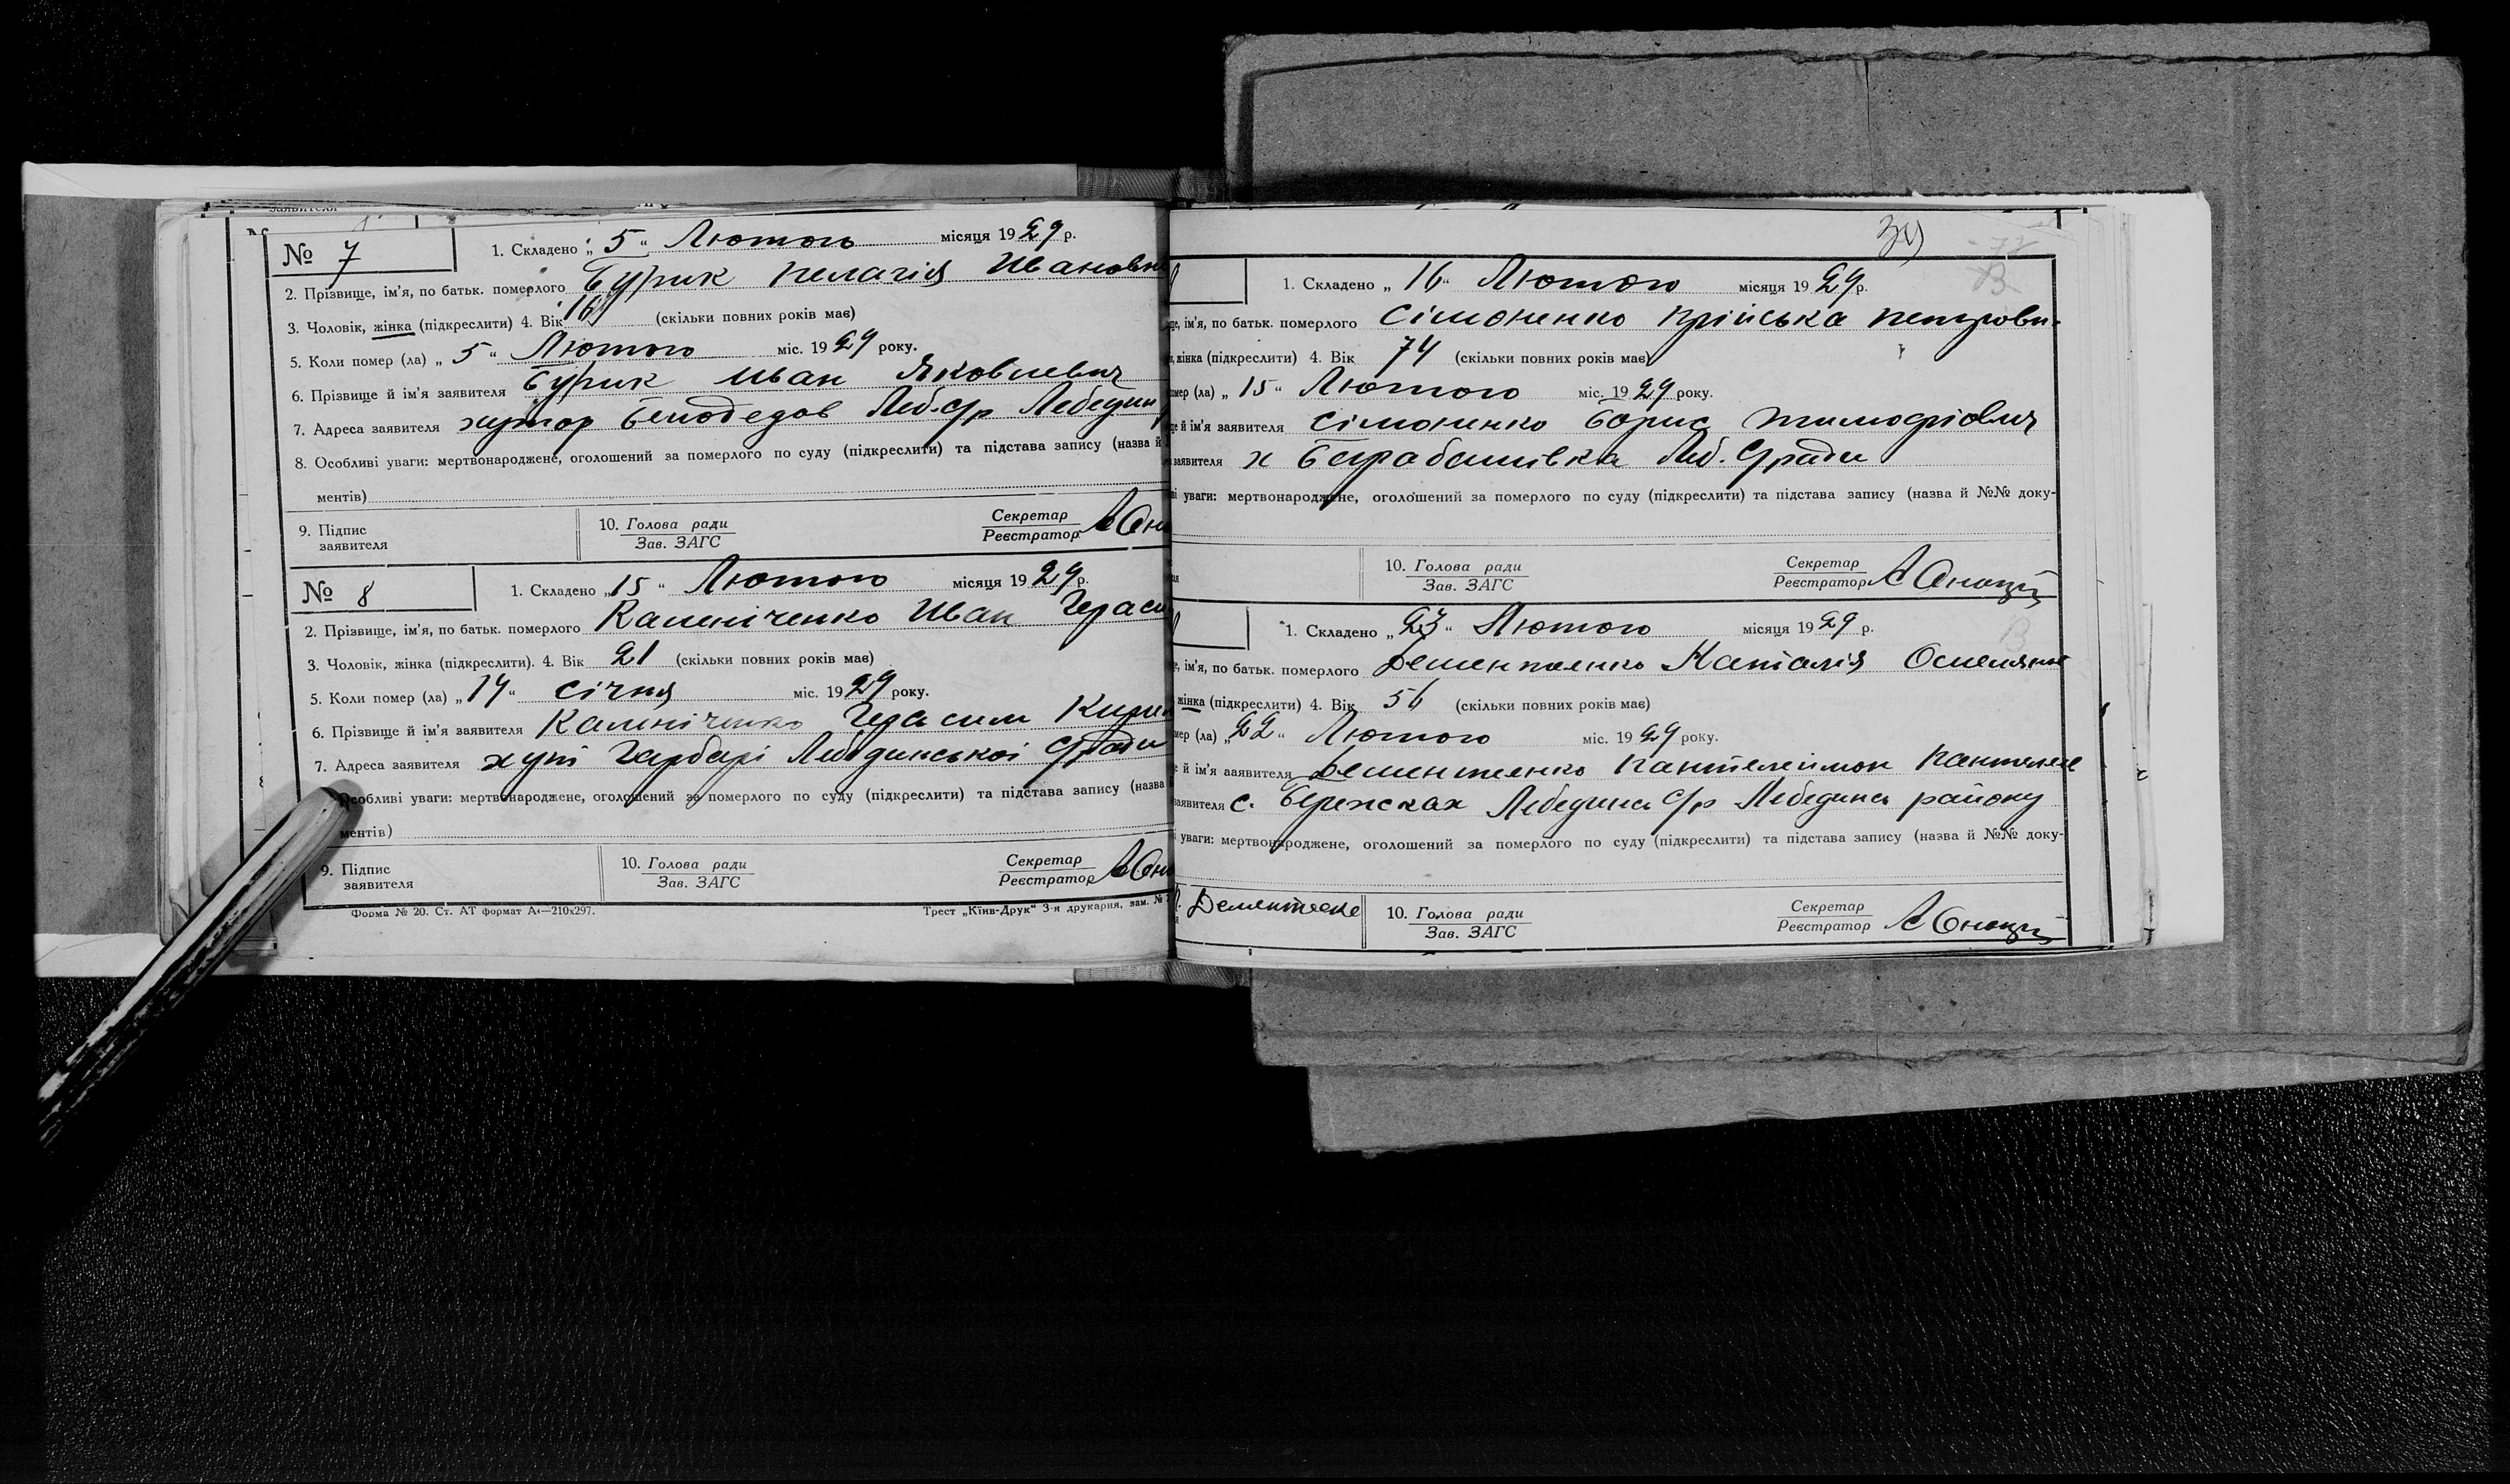 № 7
1. Складено „ 5 “ Лютого місяця 1929 р.
2. Прізвище, ім'я, по батьк. померлого Бурик Пелагія Ивановн
3. Чоловік, жінка (підкреслити) 4. Вік 16 (скільки повних років має)
5. Коли помер (ла) „ 5 “ Лютого міс. 1929 року.
6. Прізвище й ім'я заявителя Бурик Иван Яковлевич
7. Адреса заявителя хутор Белодедов Леб. с/р Лебедин
8. Особливі уваги: мертвонароджене, оголошений за померлого по суду (підкреслити) та підстава запису (назва й
ментів)
9. Підпис заявителя 10. Голова ради Зав. ЗАГС Секретар Реєстратор
№ 8
1. Складено „ 15 “ Лютого місяця 1929 р.
2. Прізвище, ім'я, по батьк. померлого Калініченко Иван Гераси
3. Чоловік, жінка (підкреслити). 4. Вік 21 (скільки повних років має)
5. Коли помер (ла) „ 14 “ січня міс. 1929 року.
6. Прізвище й ім'я заявителя Калініченко Герасим
7. Адреса заявителя хут Гарбарі Лебединської с/ради
Особливі уваги: мертвонароджене, оголошений за померлого по суду (підкреслити) та підстава запису (назва
ментів)
9. Підпис заявителя 10. Голова ради Зав. ЗАГС Секретар Реєстратор
Форма № 20. Ст. АТ формат А4—210х297. Трест „Київ-Друк“ 3-я друкарня, зам. №
34
1. Складено „ 16 “ Лютого місяця 1929 р.
ім'я, по батьк. померлого Сімоненко Прійська Петрови
жінка (підкреслити) 4. Вік 74 (скільки повних років має)
мер (ла) „ 15 “ Лютого міс. 1929 року.
й ім'я заявителя Сімоненко Борис Тимофіович
заявителя х Барабашівка Леб. С/ради
уваги: мертвонароджене, оголошений за померлого по суду (підкреслити) та підстава запису (назва й №№ доку-
10. Голова ради Зав. ЗАГС Секретар Реєстратор
1. Складено „ 23 “ Лютого місяця 1929 р.
ім'я, по батьк. померлого Дементиенко Наталія
жінка (підкреслити) 4. Вік 56 (скільки повних років має)
мер (ла) „ 22 “ Лютого міс. 1929 року.
й ім'я заявителя Дементиенко Кантелеймон Кантелее
заявителя с. Бережках Лебединс с/р Лебединс району
уваги: мертвонароджене, оголошений за померлого по суду (підкреслити) та підстава запису (назва й №№ доку-
Дементиенко 10. Голова ради Зав. ЗАГС Секретар Реєстратор